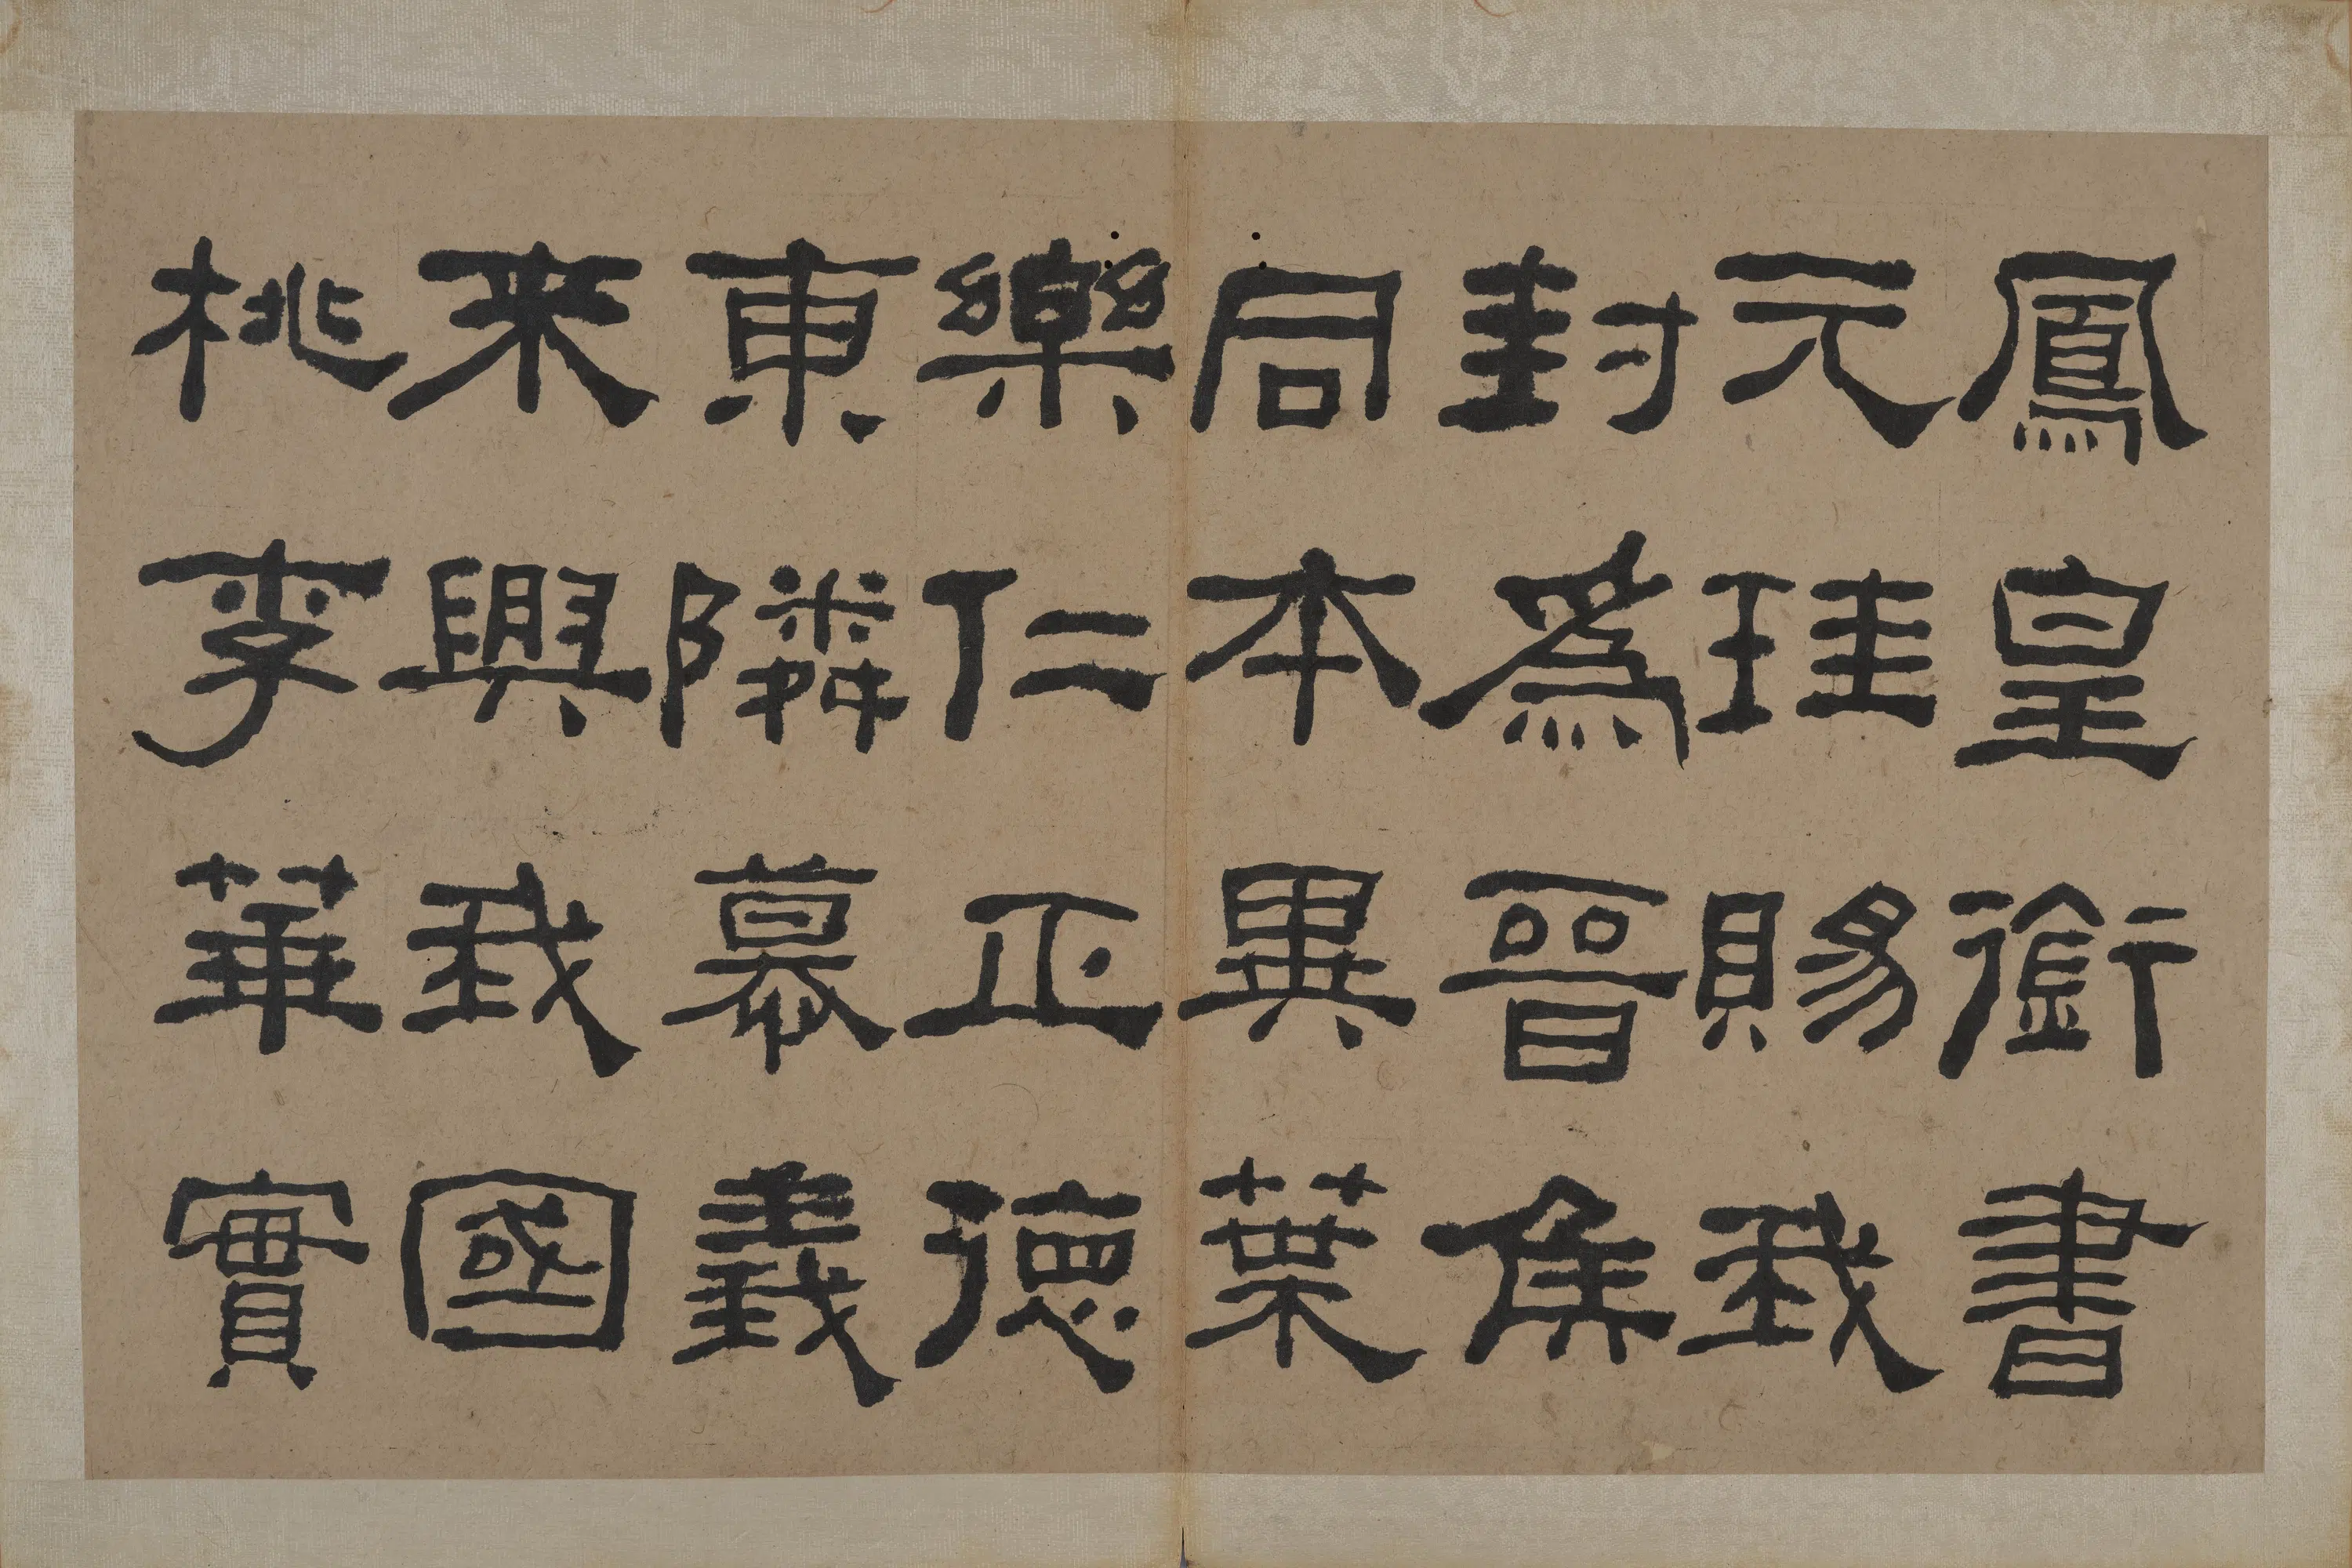 鳳皇銜書
元珪賜我
封爲晉侯
同本異葉
樂仁正德
東隣慕義
来興我國
桃李華實